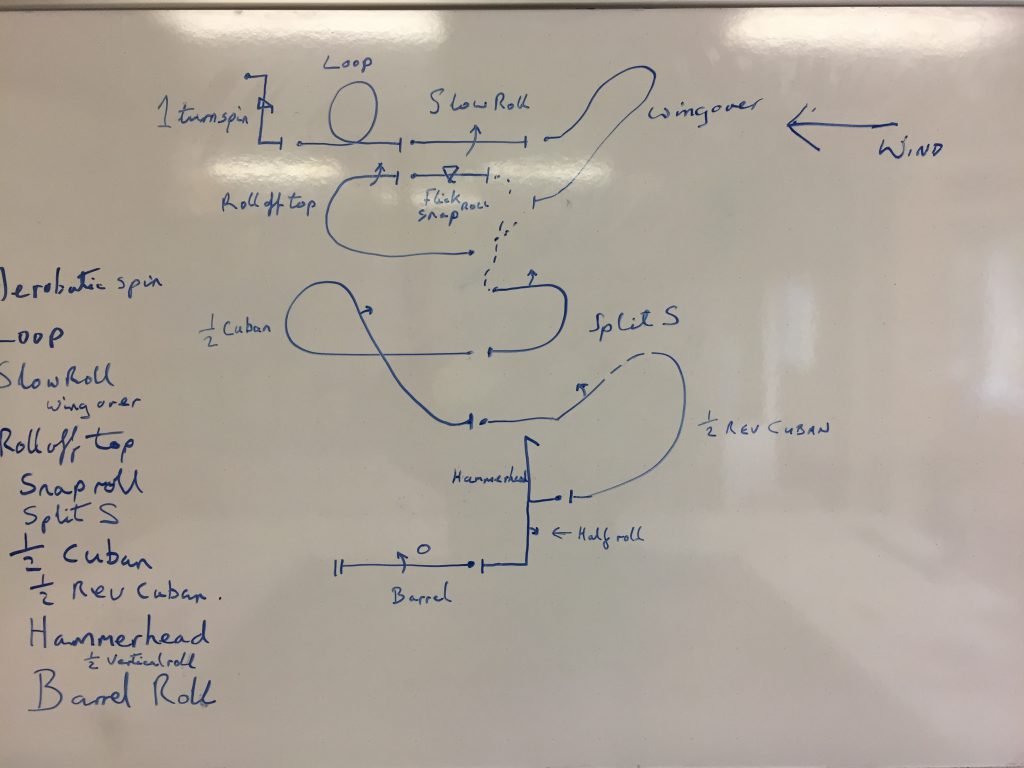 Loop
1 turn spin
Slow Roll
Wingover
WIND
Roll off top
Flick Roll
snap
Aerobatic spin
Loop
Slow Roll
wing over
Roll off top
Snap roll
Split S
1/2 Cuban
1/2 Rev Cuban.
Hammerhead
1/2 Vertical roll
Barrel Roll
1/2 Cuban
Split S
1/2 REV CUBAN
Hammerhead
← Half roll
Barrel